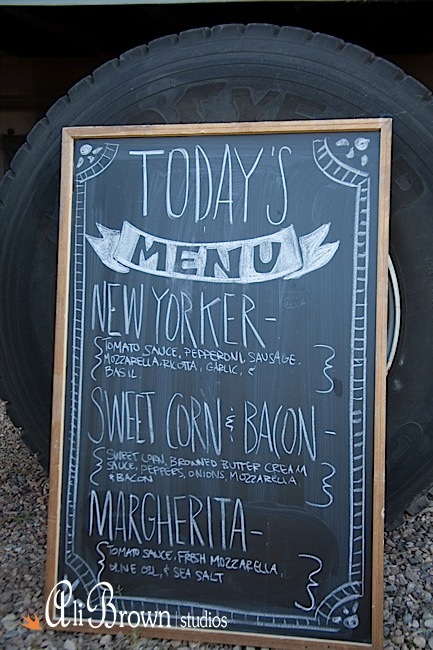 TODAY'S
MENU
NEW YORKER-
TOMATO SAUCE, PEPPERONI, SAUSAGE,
MOZZARELLA, RICOTTA, GARLIC, &
BASIL
SWEET CORN & BACON -
SWEET CORN, BROWNED BUTTER CREAM
SAUCE, PEPPERS, ONIONS, MOZZARELLA
& BACON
MARGHERITA-
TOMATO SAUCE, FRESH MOZZARELLA,
OLIVE OIL, & SEA SALT
Ali Brown | studios